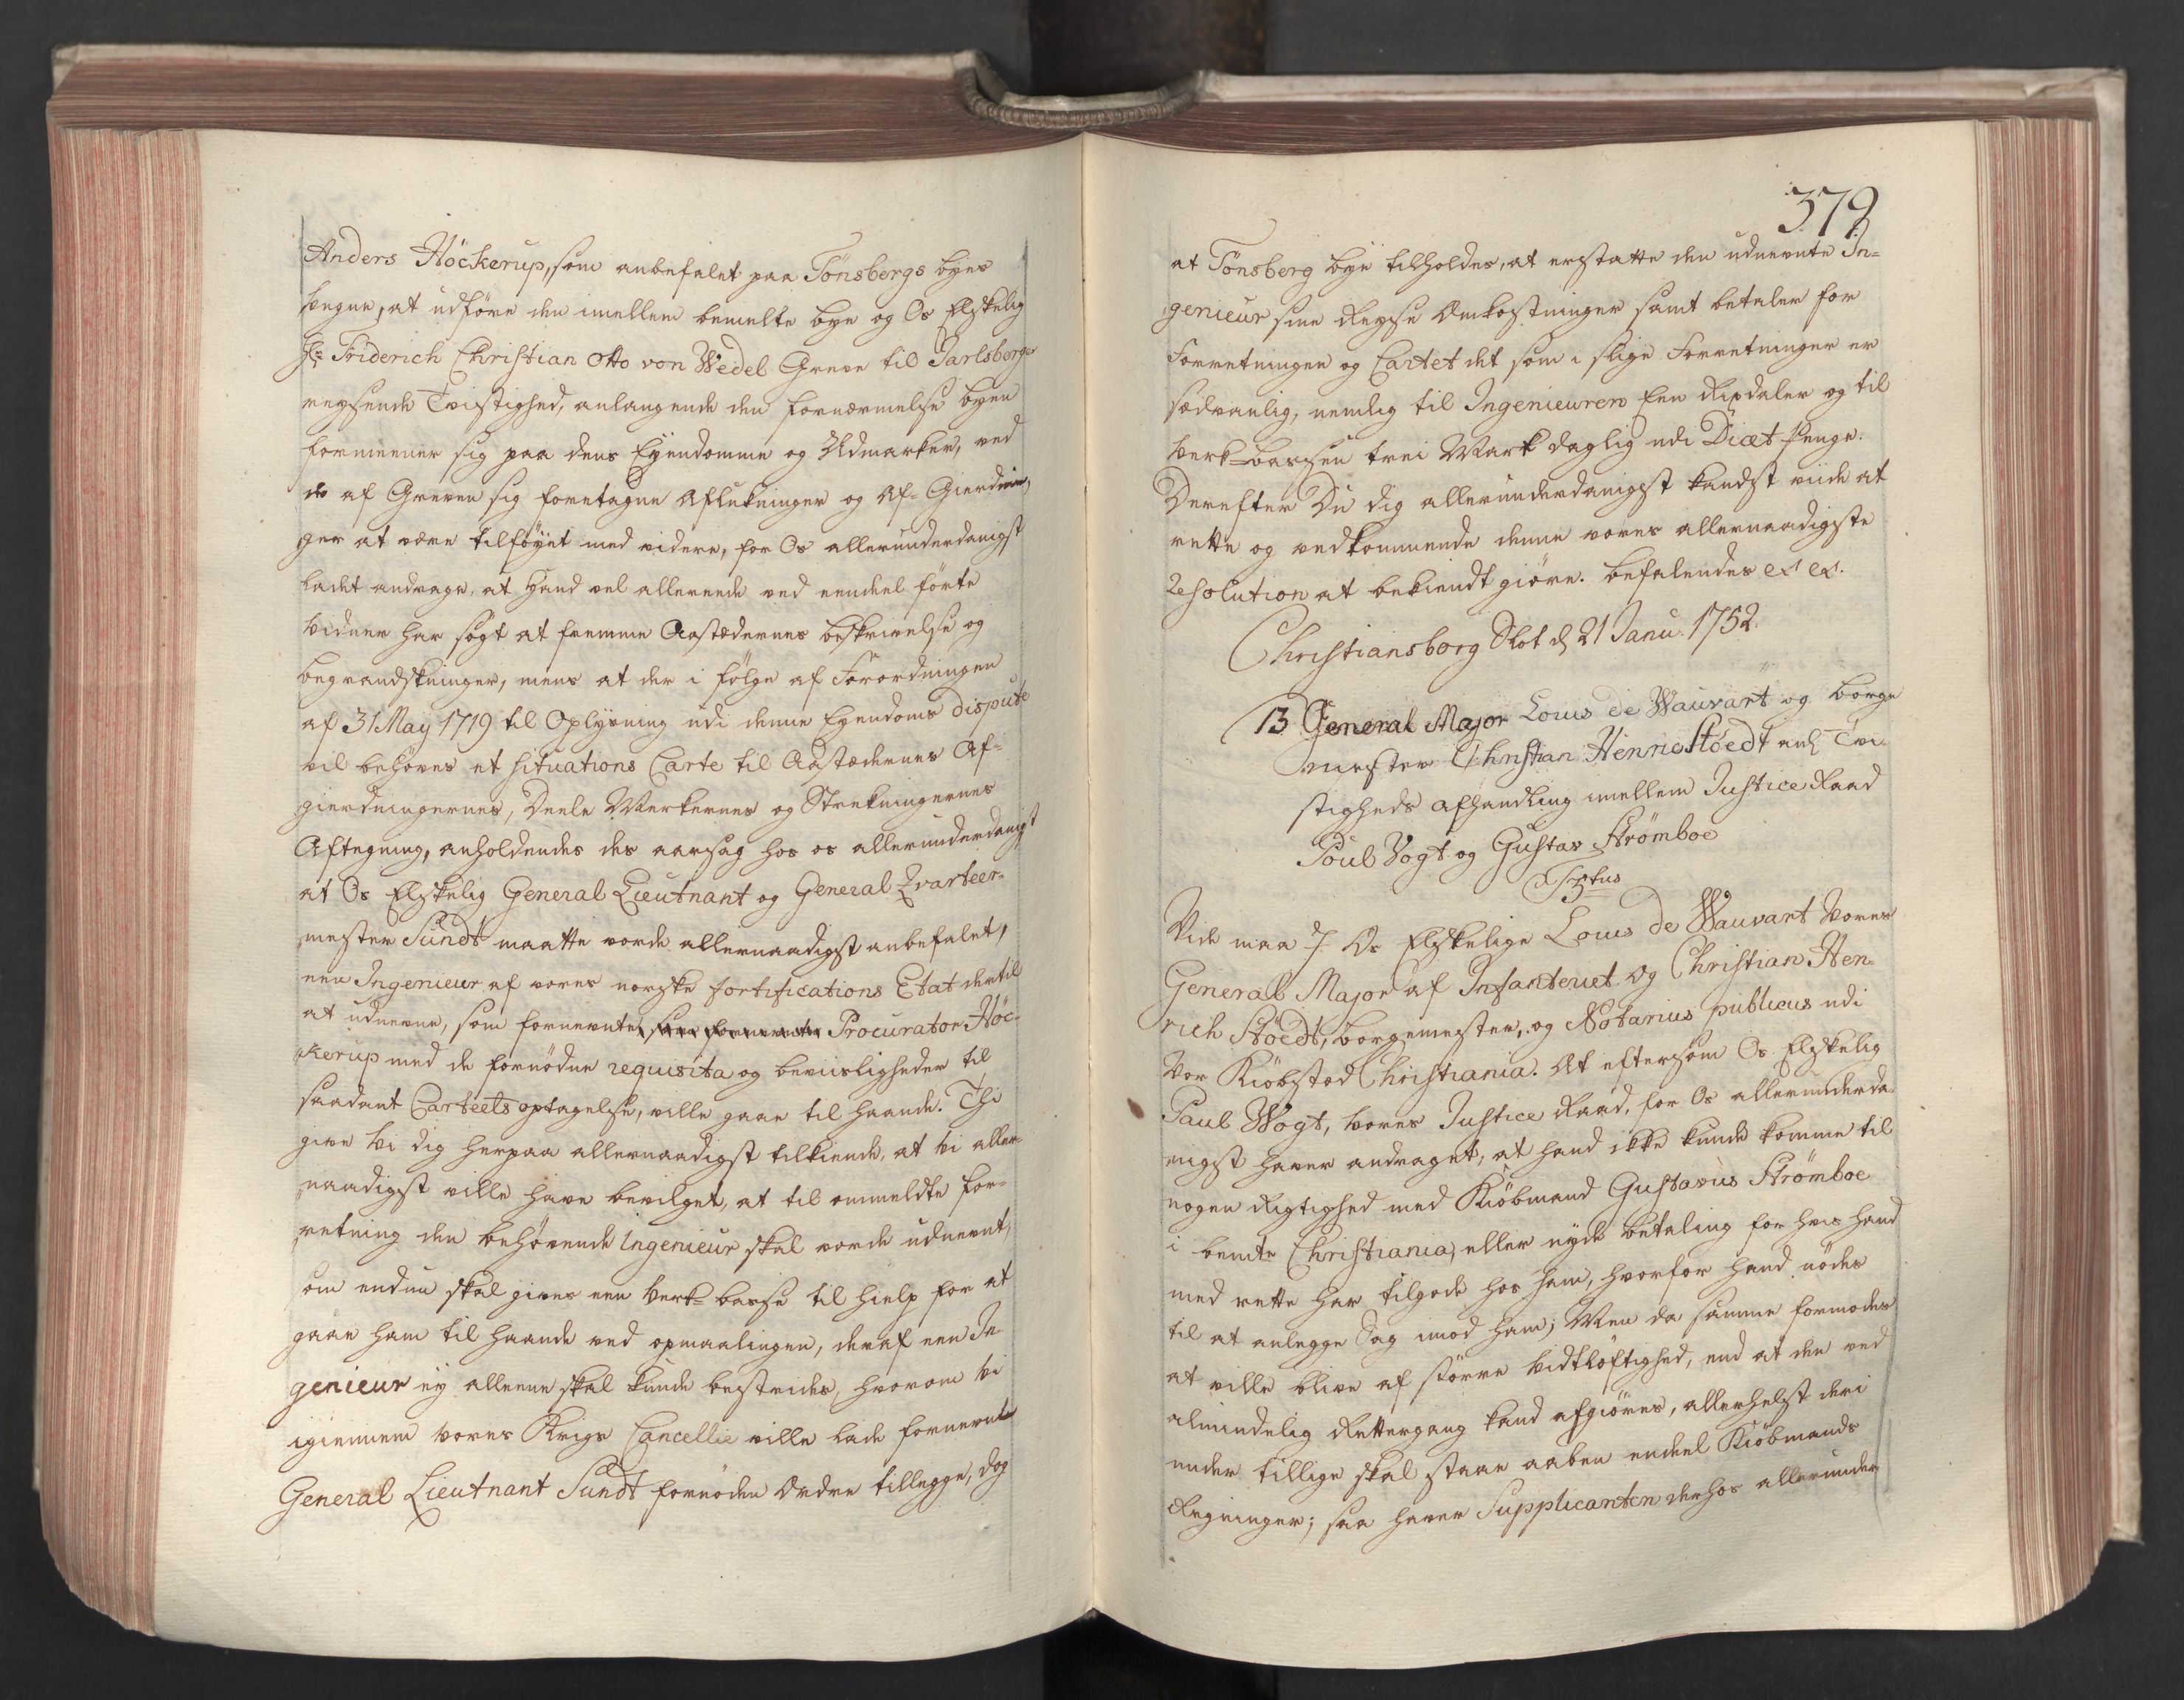 Anders Höckerup, som anbefalet paa Tönsbergs byes
vegne, at udföre den imellem bemelte bye og Os Elskelig
Hr. Friderich Christian Otto von Wedel Greve til Jarlsberg
reysende Tvistighed, anlangende den fornærmelse byen
formeener sig paa dens Eyendomme og Udmarker, ved
de af Greven sig foretagne Aflukninger og Af- Gierdnin,
ger at være tilföyet med videre, for Os allerunderdanigst
ladet andrage, at Hand vel allereede ved eendeel förte
vidner har sögt at fremme Aastædernes beskrivelse og
begrandskninger, mens at der i fölge af Forordningen
af 31 May 1719 til Oplysning udi denne Eyendoms dispute
vil behöves et situations Carte til Aastædernes Af-
gierdningernes, Deele Merkernes og Strekningernes
Aftegning, anholdendes des aarsag hos os allerunderdanigst
at Os Elskelig General Lieutnant og General Qvarteer-
mester Sundt maatte vorde allernaadigst anbefalet,
een Ingenieur af vores norske fortifications Etat dertil
at udnevne, som fornevnte som fornevnte Procurator Höc-
kerup med de fornödne requisita og beviisligheder til
saadant Carteets optagelse, ville gaae til haande. Thi
give Vi dig herpaa allernaadigst tilkiende, at Vi aller-
naadigst ville have bevilget, at til ommeldte for-
retning den behövende Ingenieur skal vorde udnevnt,
om endnu skal gives een Verk-basse til hielp for at
gaae ham til haande ved opmaalingen, deraf een In
genieur ey alleene skal kunde bestrides, hvorom Vi
igiennem vores Krigs Cancellie ville lade fornevnte
General Lieutnant Sundt fornöden Ordre tillegge, dog
379.
at Tönsberg bye tilholdes, at erstatte den udnevnte In-
genieur sine Reyse Omkostninger samt betaler for
Forretningen og Cartet det som i slige Forretninger er
sædvanlig, nemlig til Ingenieuren Een Rixdaler og til
Verk-bassen trei Mark daglig udi Diæt-Penge.
Derefter Du dig allerunderdanigst kandst viide at
rette og vedkommende denne vores allernaadigste
Resolution at bekiendtgiöre. befalendes etc etc.
Christiansborg Slot d 21 Janu. 1752.
13 General Major Louis de Wauvart og borge
mester Christian Henric Stöedt anl Tvi
stigheds afhandling imellem Justice Raad
Poul Vogt og Gustav Strömboe
F 5tus
Vide maa I Os Elskelige Louis de Wauvart Vores
General Major af Infanteriet og Christian Hen-
rich Stöedt, borgemester, og Notarius publicus udi
Vor Kiöbstad Christiania. At eftersom Os Elskelig
Paul Wogt, vores Justice Raad, for Os allerunderda
nigst haver andraget, at hand ikke kunde komme til
nogen Rigtighed med Kiöbmand Gustavus Strömboe
i bemte Christiania, eller nyde betaling for hvis hand
med rette har tilgode hos ham, hvorfor hand nödes
til at anlegge Sag imod ham; Men da samme formodes
at ville blive af större Vidtlöftighed, end at den ved
almindelig Rettergang kand afgiöres, allerhelst deri
under tillige skal staae aaben endeel Kiöbmands
Regninger; saa haver Supplicanten derhos allerunder